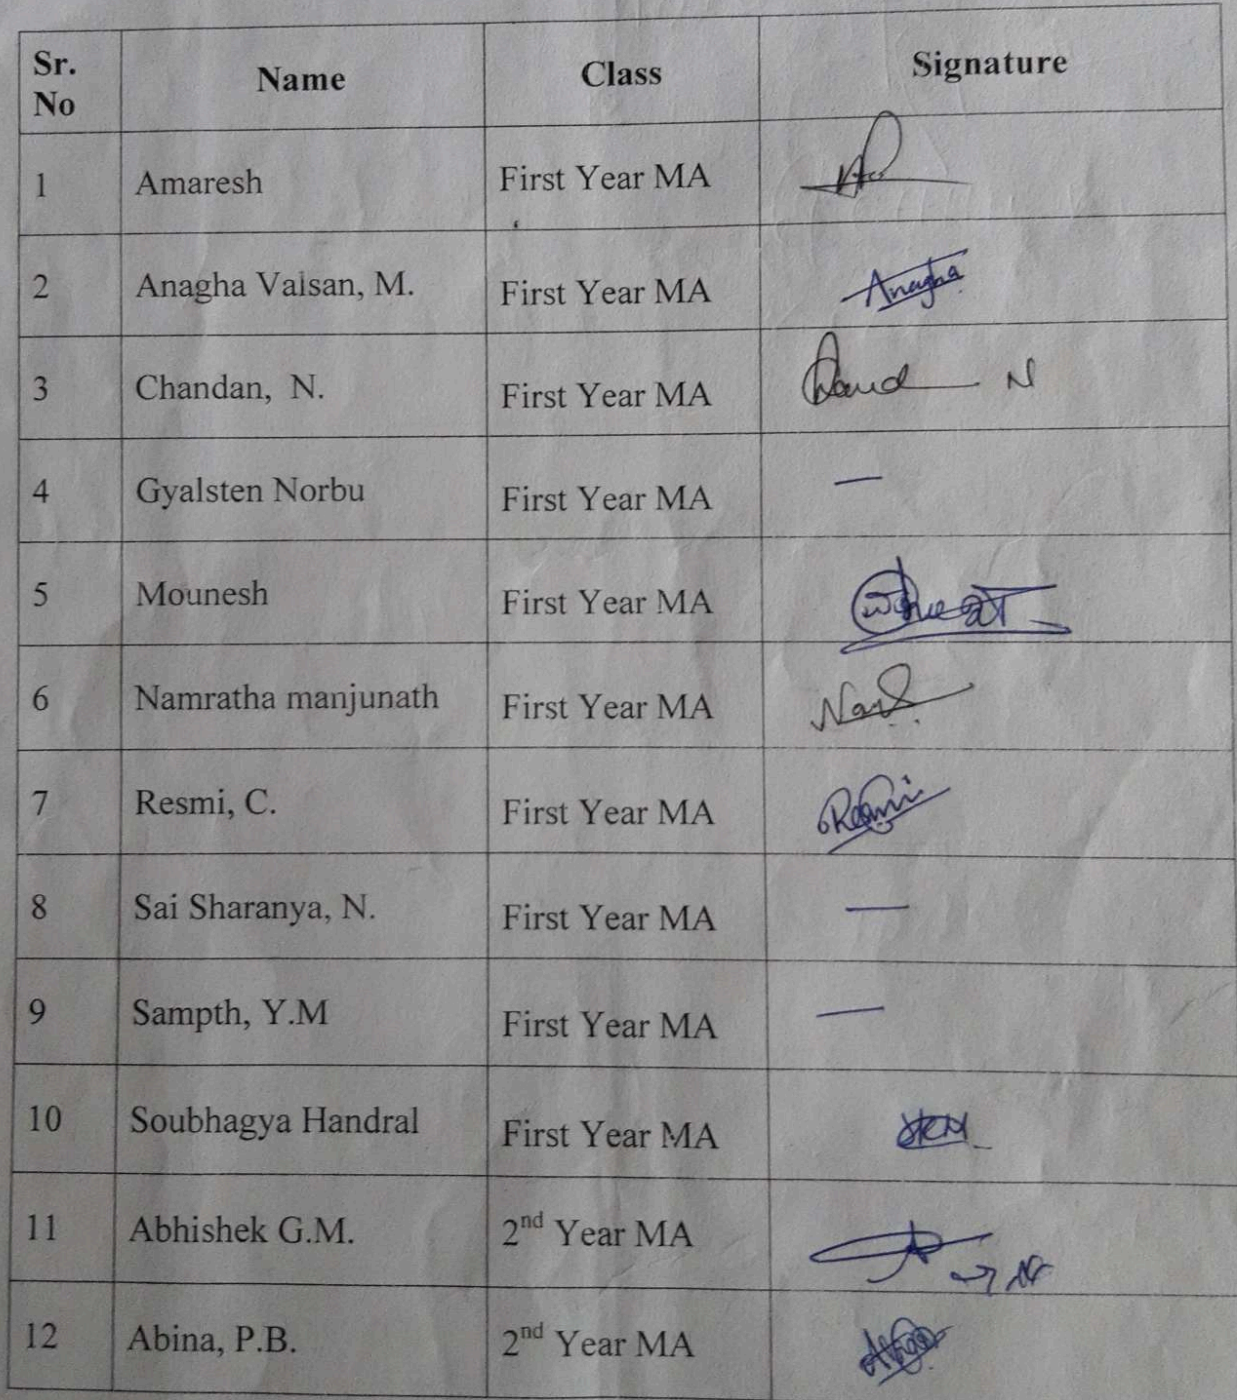 Sr. No Name Class Signature
1 Amaresh First Year MA
2 Anagha Valsan, M. First Year MA Anagha
3 Chandan, N. First Year MA Chand N
4 Gyalsten Norbu First Year MA —
5 Mounesh First Year MA
6 Namratha manjunath First Year MA
7 Resmi, C. First Year MA Resmi
8 Sai Sharanya, N. First Year MA —
9 Sampth, Y.M First Year MA —
10 Soubhagya Handral First Year MA
11 Abhishek G.M. 2nd Year MA
12 Abina, P.B. 2nd Year MA